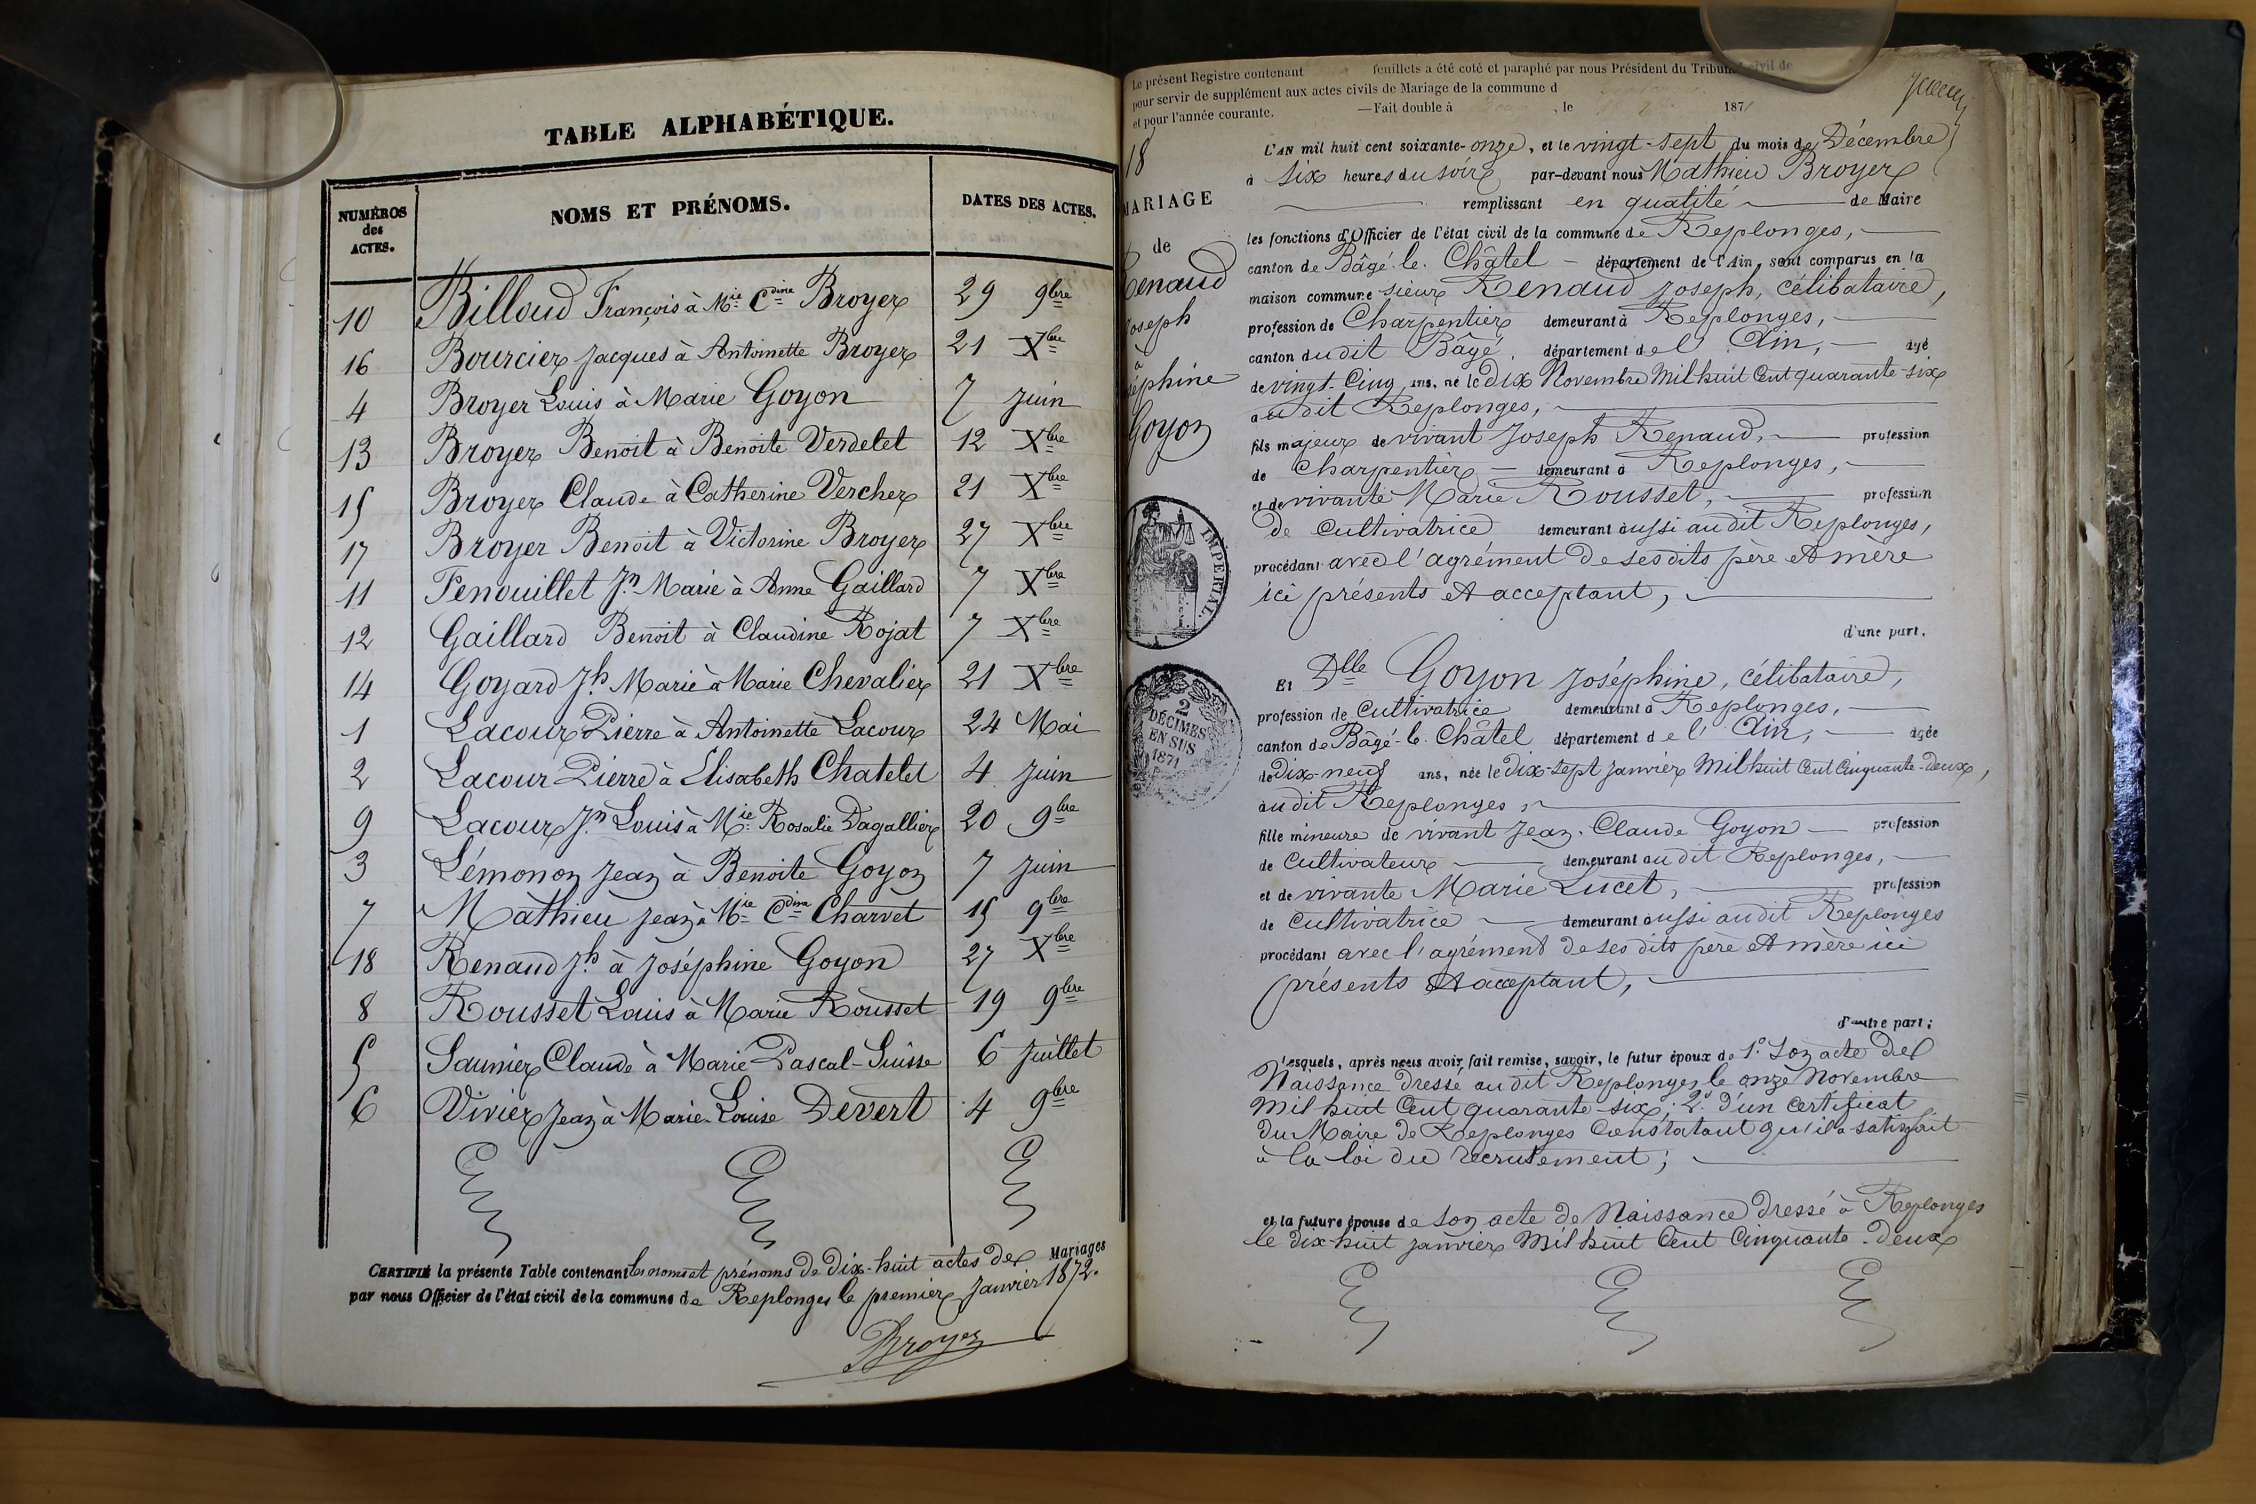 TABLE ALPHABÉTIQUE.
NUMÉROS des ACTES.
NOMS ET PRÉNOMS.
DATES DES ACTES.
10 Billoud François à Mie Cdine Broyer 29 9bre
16 Bourcier Jacques à Antoinette Broyer 21 Xbre
4 Broyer Louis à Marie Goyon 7 Juin
13 Broyer Benoit à Benoite Verdelet 12 Xbre
15 Broyer Claude à Catherine Vercher 21 Xbre
17 Broyer Benoit à Victorine Broyer 27 Xbre
11 Fenouillet Jn Marie à Anne Gaillard 7 Xbre
12 Gaillard Benoit à Claudine Rojat 7 Xbre
14 Goyard Jh Marie à Marie Chevalier 21 Xbre
1 Lacour Pierre à Antoinette Lacour 24 Mai
2 Lacour Pierre à Elisabeth Chatelet 4 Juin
9 Lacour Jn Louis à Mie Rosalie Dagallier 20 9bre
3 Lémonon Jean à Benoite Goyon 7 Juin
7 Mathieu Jean à Mie Cdine Charvet 15 9bre
18 Renaud Jh à Joséphine Goyon 27 Xbre
8 Rousset Louis à Marie Rousset 19 9bre
5 Saunier Claude à Marie Pascal-Suisse 6 Juillet
6 Vivier Jean à Marie-Louise Devert 4 9bre
CERTIFIÉ la présente Table contenant les noms et prénoms de dix-huit actes de Mariages
par nous Officier de l'état civil de la commune de Replonges le premier Janvier 1872.
Broyer
Le présent Registre contenant feuillets a été coté et paraphé par nous Président du Tribunal civil de
pour servir de supplément aux actes civils de Mariage de la commune d
et pour l'année courante. —Fait double à , le 1871
18
MARIAGE
de
Renaud
Joseph
à
Joséphine
Goyon
IMPÉRIAL.
2
DÉCIMES
EN SUS
1871
L'AN mil huit cent soixante-onze, et le vingt-sept du mois de Décembre
à six heures du soir par-devant nous Mathieu Broyer
remplissant en qualité de Maire
les fonctions d'Officier de l'état civil de la commune de Replonges,
canton de Bâgé-le-Châtel département de l'Ain, sont comparus en la
maison commune sieur Renaud Joseph, célibataire,
profession de Charpentier demeurant à Replonges,
canton dudit Bâgé, département de l'Ain, âgé
de vingt-cinq ans, né le dix Novembre Mil huit Cent quarante-six
audit Replonges,
fils majeur de vivant Joseph Renaud, profession
de Charpentier demeurant à Replonges,
et de vivante Marie Rousset, profession
de cultivatrice demeurant aussi audit Replonges,
procédant avec l'agrément de ses dits père et mère
ici présents et acceptant,
d'une part.
Et Dlle Goyon Joséphine, célibataire,
profession de Cultivatrice demeurant à Replonges,
canton de Bâgé-le-Châtel département de l'Ain, âgée
de Dix-neuf ans, née le dix-sept Janvier Mil huit Cent Cinquante-deux,
audit Replonges,
fille mineure de vivant Jean-Claude Goyon profession
de cultivateur demeurant audit Replonges,
et de vivante Marie Lucet, profession
de cultivatrice demeurant aussi audit Replonges
procédant avec l'agrément de ses dits père et mère ici
présents et acceptant,
d'autre part;
Lesquels, après nous avoir fait remise, savoir, le futur époux de 1.° son acte de
Naissance dressé audit Replonges le onze Novembre
Mil huit Cent quarante-six; 2.° d'un certificat
du Maire de Replonges Constatant qu'il a satisfait
à la loi du recrutement;
et la future épouse de son acte de Naissance dressé à Replonges
le dix-huit Janvier Mil huit Cent Cinquante-deux